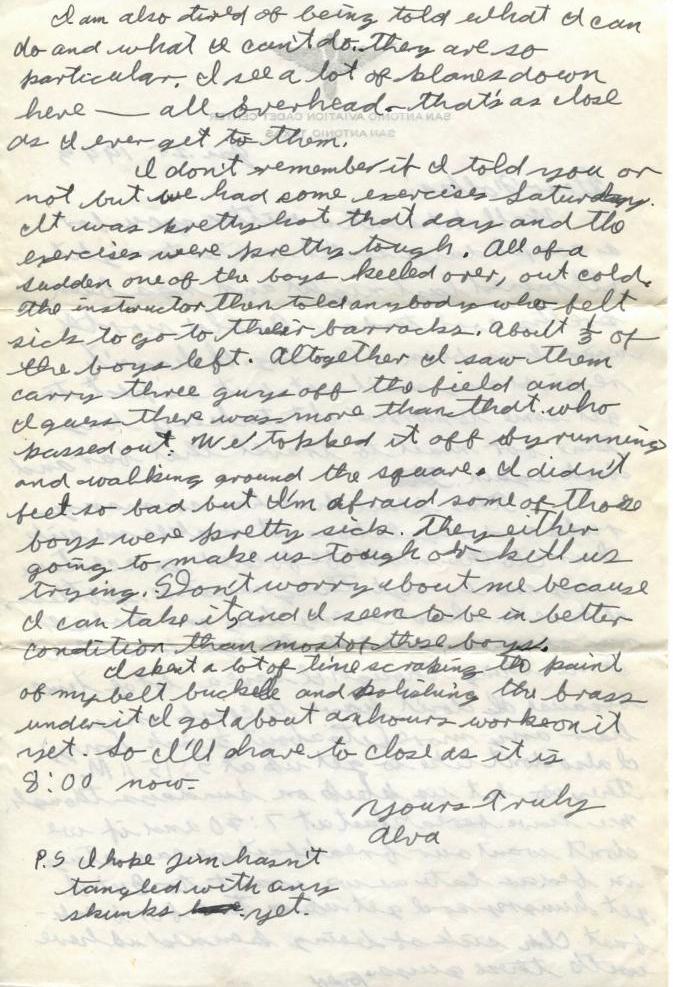 I am also tired of being told what I can
do and what I can't do. They are so
particular. I see a lot of planes down
here — all overhead – that's as close
as I ever get to them.
SAN ANTONIO AVIATION CADET CENTER
SAN ANTONIO, TEXAS
I don't remember if I told you or
not but we had some exercises Saturday.
It was pretty hot that day and the
exercises were pretty tough. All of a
sudden one of the boys keeled over, out cold.
The instructor then told anybody who felt
sick to go to their barracks. About 1/3 of
the boys left. Altogether I saw them
carry three guys off the field and
I guess there was more than that who
passed out. We topped it off by running
and walking around the square. I didn't
feel so bad but I'm afraid some of those
boys were pretty sick. They either
going to make us tough or kill us
trying. Don't worry about me because
I can take it, and I seem to be in better
condition than most of these boys.
I spent a lot of time scraping the paint
of my belt buckle and polishing the brass
under it I got about an hours work on it
yet. So I'll have to close as it is
8:00 now.
Yours Truly
Alva
P.S I hope Jim hasn't
tangled with any
skunks yet.